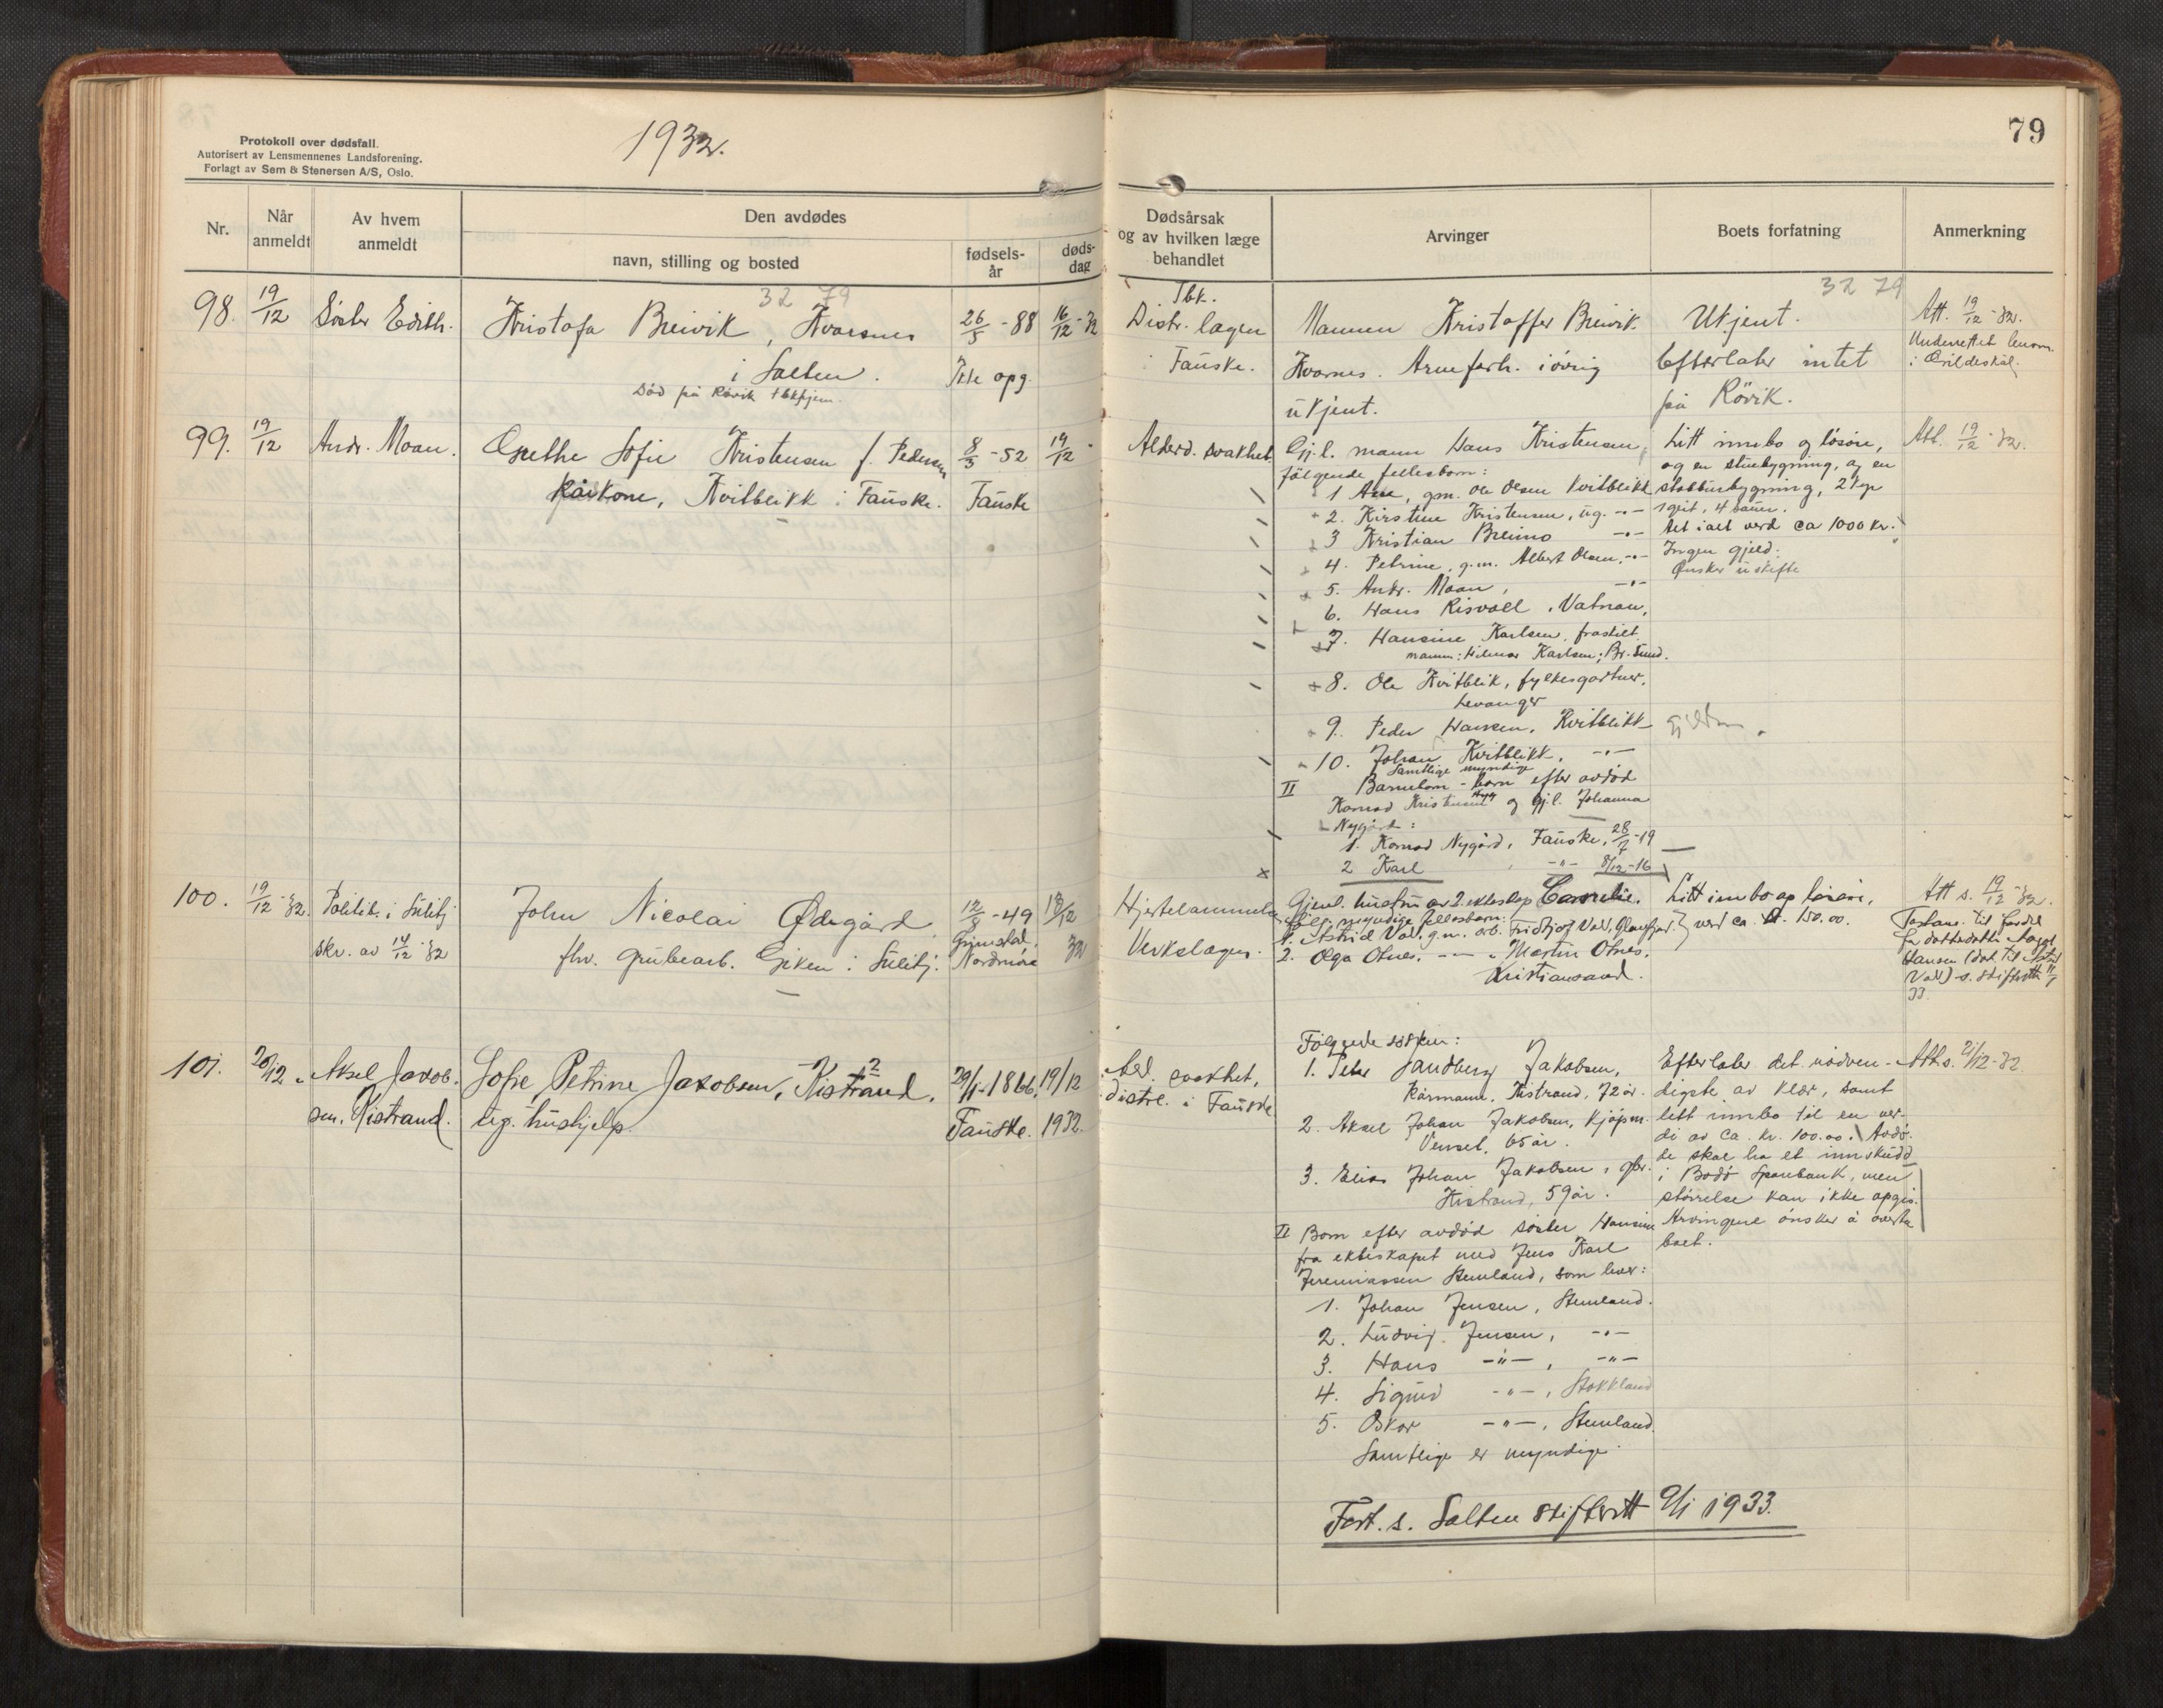 Protokoll over dødsfall.
Autorisert av Lensmennenes Landsforening.
Forlagt av Sem & Stenersen A/S, Oslo.
1932.
79
Nr.
Når anmeldt
Av hvem anmeldt
Den avdødes
navn, stilling og bosted
fødselsår
dødsdag
Dødsårsak og av hvilken læge behandlet
Arvinger
Boets forfatning
Anmerkning
32 79
32 79
98. 19/12 Söster Edith. Kristofa Breivik, Kvarsnes 26/5-88 16/12-32
i Salten. Ikke opg.
Död på Rövik tbkhjem.
Tbk.
Distr. lægen
i Fauske.
Mannen Kristoffer Breivik
Kvarnes. Arveforh. iövrig
ukjent.
Ukjent.
Efterlater intet
på Rövik.
Att. 19/12-32.
Underrettet lensm.
i Gildeskål.
99. 19/12 Andr. Moan. Grethe Sofie Kristensen f. Pedersen 8/3-52 19/12
kårkone, Kvitblikk i Fauske. Fauske
Alderd. svakhet.
Gjl. mann Hans Kristensen,
følgende fellesborn:
1 Ane, gm. Ole Olsen Kvitblikk
2. Kirstine Kristensen, ug. -"-
3 Kristian Breimo -"-
4. Petrine, g.m. Albert Olsen, -"-
5. Andr. Moan, -"-
6. Hans Risvoll, Vatnan,
7. Hansine Karlsen, fraskilt
mann: Hilmar Karlsen; Br. sund.
8. Ole Kvitblik, fylkesgartner,
Levanger
9. Peder Hansen, Kvitblikk
10. Johan Kvitblikk, -"-
Samtlige myndige
II Barnebarn - born efter avdöd
Konrad Kristensen og gjl. Johanna
Nygård:
1. Konrad Nygård, Fauske, 28/7-19
2 Karl -"- 8/12-16
Litt innbo og lösöre,
og en stuebygning, og en
stabbursbygning, 2 kyr
1 geit, 4 sauer.
Alt ialt verd ca 1000 kr.
Ingen gjeld.
Önsker uskifte
Att. 19/12-32.
100. 19/12-32. Politik. i Sulitj John Nicolai Ødegård 12/8-49 13/12
skr. av 14/12 32 fhv. grubearb. Giken i Sulitj. Grimstad, Nordmöre 32
Hjertelammelse
Verkslægen.
Gjenl. hustru av 2. ekteskap Cornelie.
følg. myndige fellesbarn:
1. Astrid Vall, g.m. arb. Fridtjof Vall, Glomfjord.
2. Olga Otnes. -"- Martin Otnes,
Kristiansand.
Litt innbo og lösöre,
verd ca. kr. 150.00.
Att s. 19/12-32.
Testam. til fordel
for datterdatter Aagot
Hansen (dat. til Astrid
Vall) s. skifterett 11/1
33.
101. 20/12 Aksel Jakobsen, Kistrand. Sofie Petrine Jakobsen, Kistrand, 29/1-1866, 19/12
ug. hushjelp. Fauske. 1932.
Ald. svakhet,
distr. i Fauske
Følgende søsken:
1. Peter Sandberg Jakobsen,
kårmann, Kistrand, 72 år.
2. Aksel Johan Jakobsen, kjöpm.
Venset, 65 år.
3. Elias Johan Jakobsen, gbr.
Kistrand, 59 år.
II Born efter avdöd söster Hansine
fra ekteskapet med Jens Karl
Jeremiassen Stemland, som lever:
1. Johan Jensen, Stemland.
2. Ludvig Jensen, -"-
3. Hans -"-, -"-
4. Sigurd -"-, Stokkland
5. Oskar -"-, Stemland.
Samtlige er myndige.
Efterlater det nödvendigste av klær, samt
litt innbo til en verdi av ca. kr. 100.00. Avdöde skal ha et innskudd
i Bodö Sparebank, men
störrelse kan ikke opgis.
Arvingene önsker å overta
boet.
Att s. 21/12-32.
Fort. s. Salten skifterett 9/1 1933.